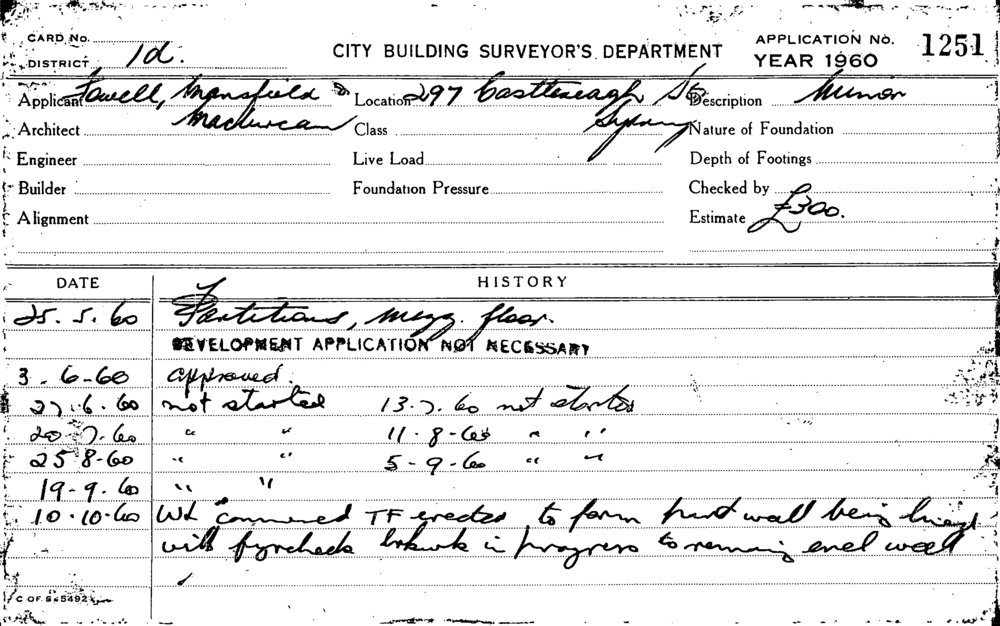 CARD No.
DISTRICT 1d.
CITY BUILDING SURVEYOR'S DEPARTMENT
APPLICATION No. 1251
YEAR 1960
Applicant Fowell, Mansfield &
Maclurcan
Location 297 Castlereagh St
Sydney
Description Minor
Architect
Class
Nature of Foundation
Engineer
Live Load
Depth of Footings
Builder
Foundation Pressure
Checked by
Alignment
Estimate £300.
DATE HISTORY
25.5.60 Partitions, mezz. floor.
DEVELOPMENT APPLICATION NOT NECESSARY
3-6-60 approved.
27.6.60 not started 13.7.60 not started
20-7-60 " " 11-8-60 " "
25 8-60 " " 5-9-60 " "
19-9-60 " "
10-10-60 Wk commenced TF erected to form front wall being lined
with fyrcheck brkwk in progress to remaining end wall
C OF S 5492